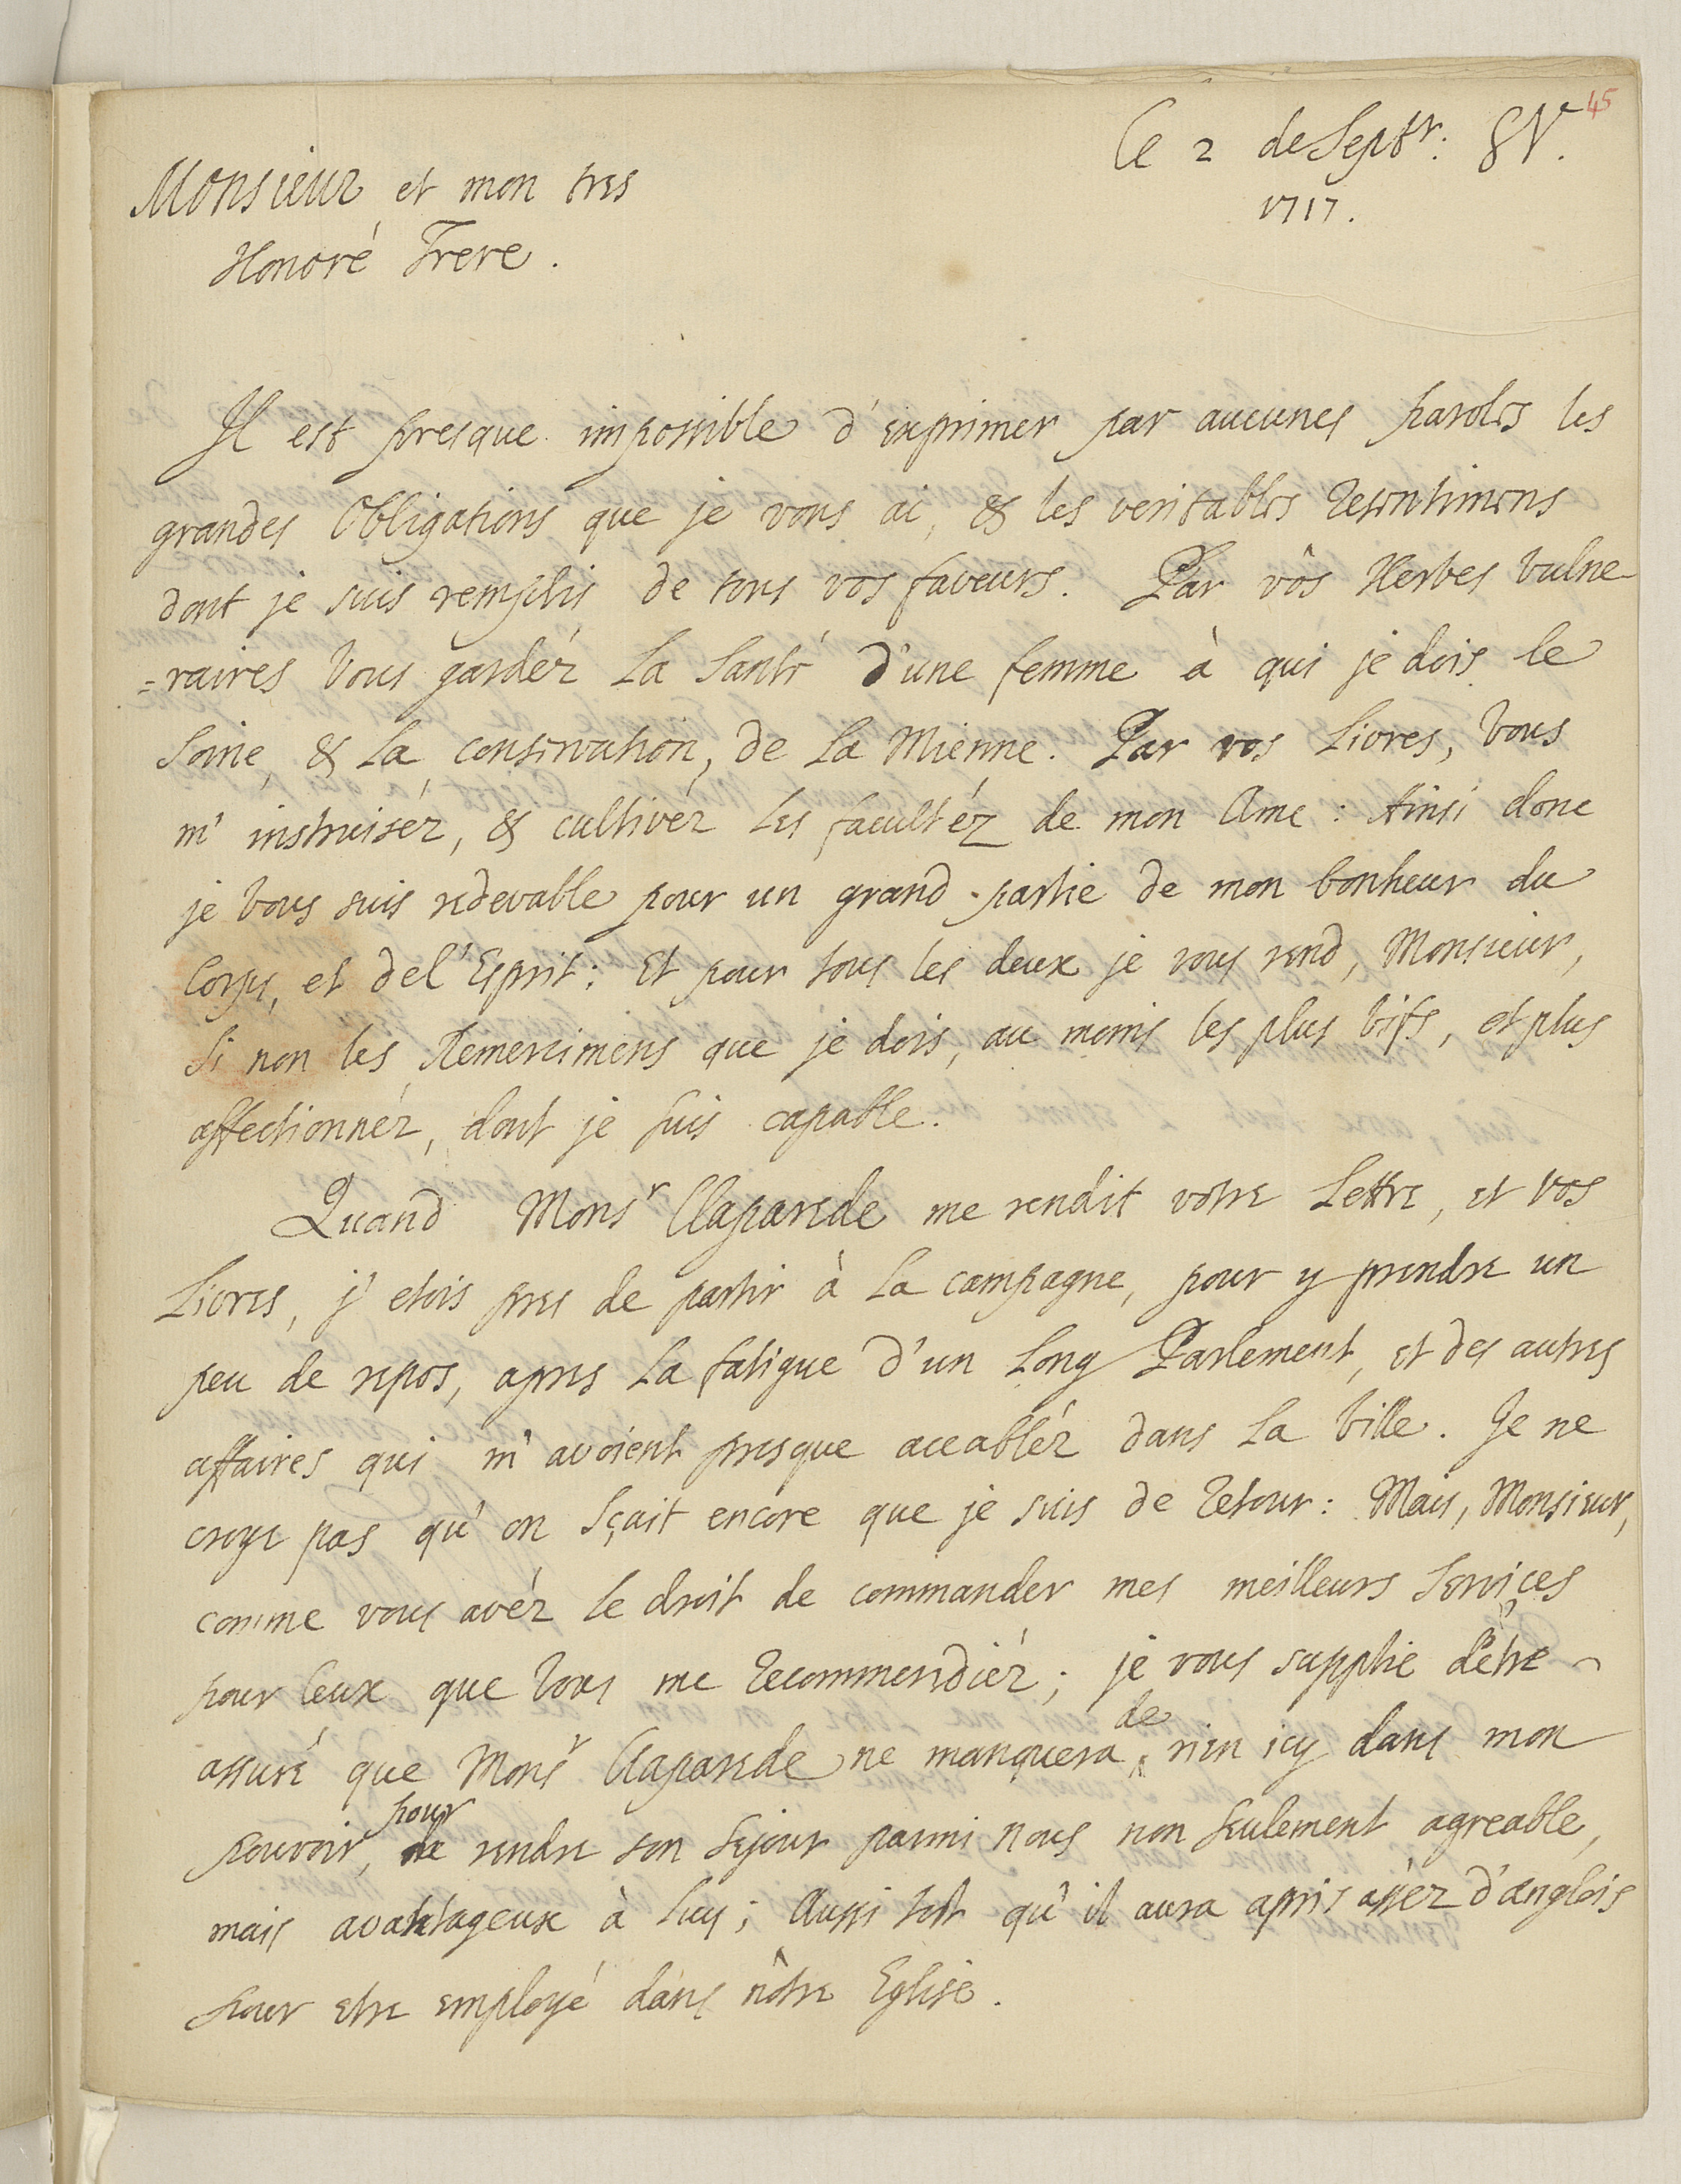 45
Le 2 de Septr. SV.
1717.
Monsieur et mon tres
Honoré Frere.
Il est presque impossible d'exprimer par aucunes paroles les
grandes Obligations que je vous ai, & les veritables resentimens
dont je suis remplis de tous vos faveurs. Par vôs Herbes Vulne
=raires Vous gardéz la santé d'une femme à qui je dois le
Soine, & la conservation, de la Mienne. Par vos Livres, Vous
m'instruiséz, & cultivéz les facultéz de mon Ame: Ainsi donc
je vous suis redevable pour un grand partie de mon bonheur du
Corps, et del'Esprit: Et pour tous les deux je vous rend, Monsieur,
Si non les Remercimens que je dois, au moins les plus vifs, et plus
affectionnéz, dont je suis capable.
Quand Monsr Claparede me rendit votre Lettre, et vos
Livres, j'etois pres de partir à la campagne, pour y prendre un
peu de repos, apres la fatigue d'un Long Parlement, et des autres
affaires qui m'avoient presque accabléz dans la Ville. Je ne
croye pas qu'on sçait encore que je suis de retour: Mais, Monsieur,
comme vous avéz le droit de commander mes meilleurs Serviçes
pour Ceux que Vous me recommendiéz; je vous supplie d'être
assuré que Monsr Claparede ne manquera de rien icy dans mon
pouvoir, pour rendre son sejour parmi nous non seulement agreable,
mais avantageux à luy; Aussi tost qu'il aura apris assez d'anglois
pour etre employé dans nôtre Eglise.